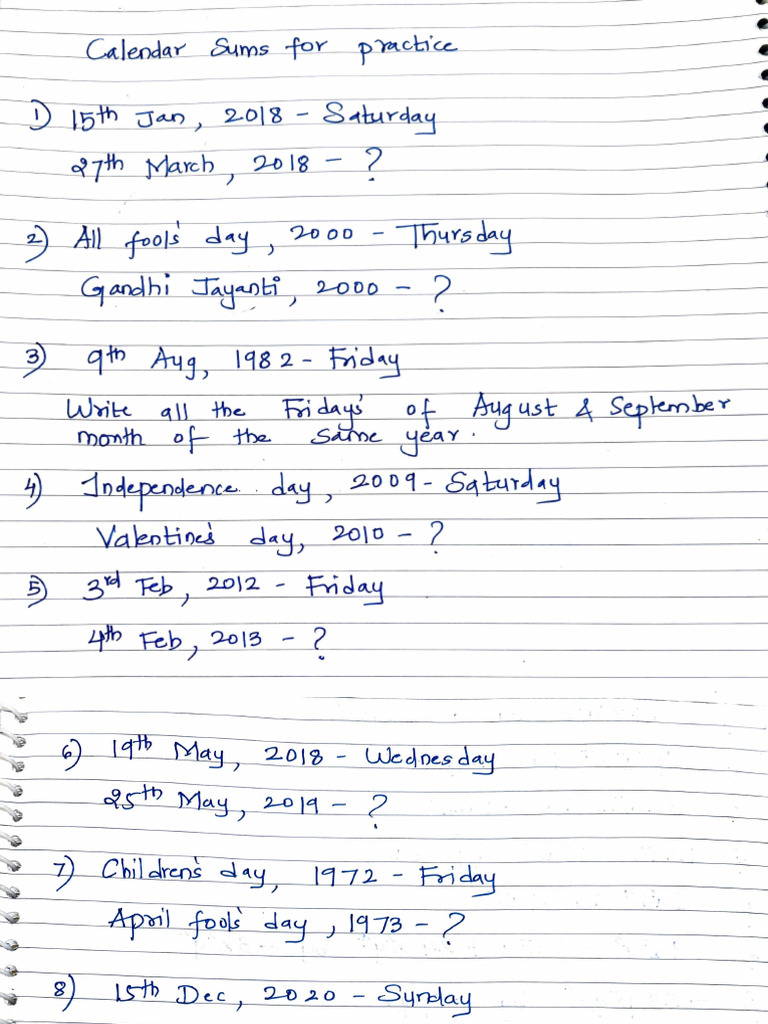 Calendar Sums for practice
1) 15th Jan, 2018 - Saturday
27th March, 2018 - ?
2) All fools' day, 2000 - Thursday
Gandhi Jayanti, 2000 - ?
3) 9th Aug, 1982 - Friday
Write all the Fridays' of August & September
month of the same year.
4) Independence day, 2009 - Saturday
Valentine's day, 2010 - ?
5) 3rd Feb, 2012 - Friday
4th Feb, 2013 - ?
6) 19th May, 2018 - Wednesday
25th May, 2019 - ?
7) Children's day, 1972 - Friday
April fools' day, 1973 - ?
8) 15th Dec, 2020 - Sunday